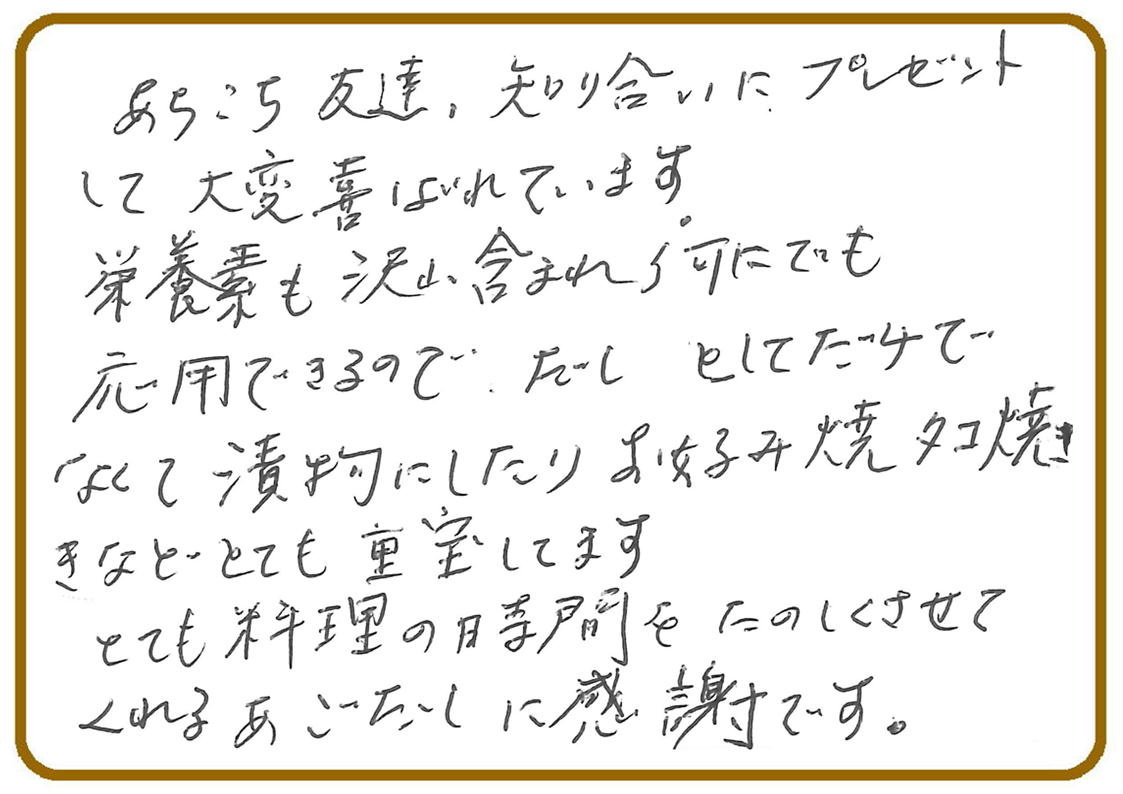 あちこち友達、知り合いにプレゼント
して大変喜ばれています
栄養素も沢山含まれ何にでも
応用できるので、だし としてだけで
なくて漬物にしたりお好み焼タコ焼き
きなどとても重宝してます
とても料理の時間をたのしくさせて
くれるあごだしに感謝です。